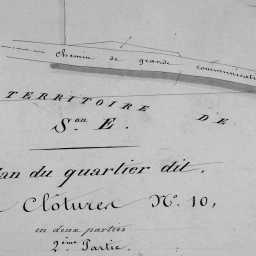 chemin de grande communicati
TERRITOIRE DE
Son E.
lan du quartier dit.
Clôtures N.º 10,
en deux parties
2ème Partie.